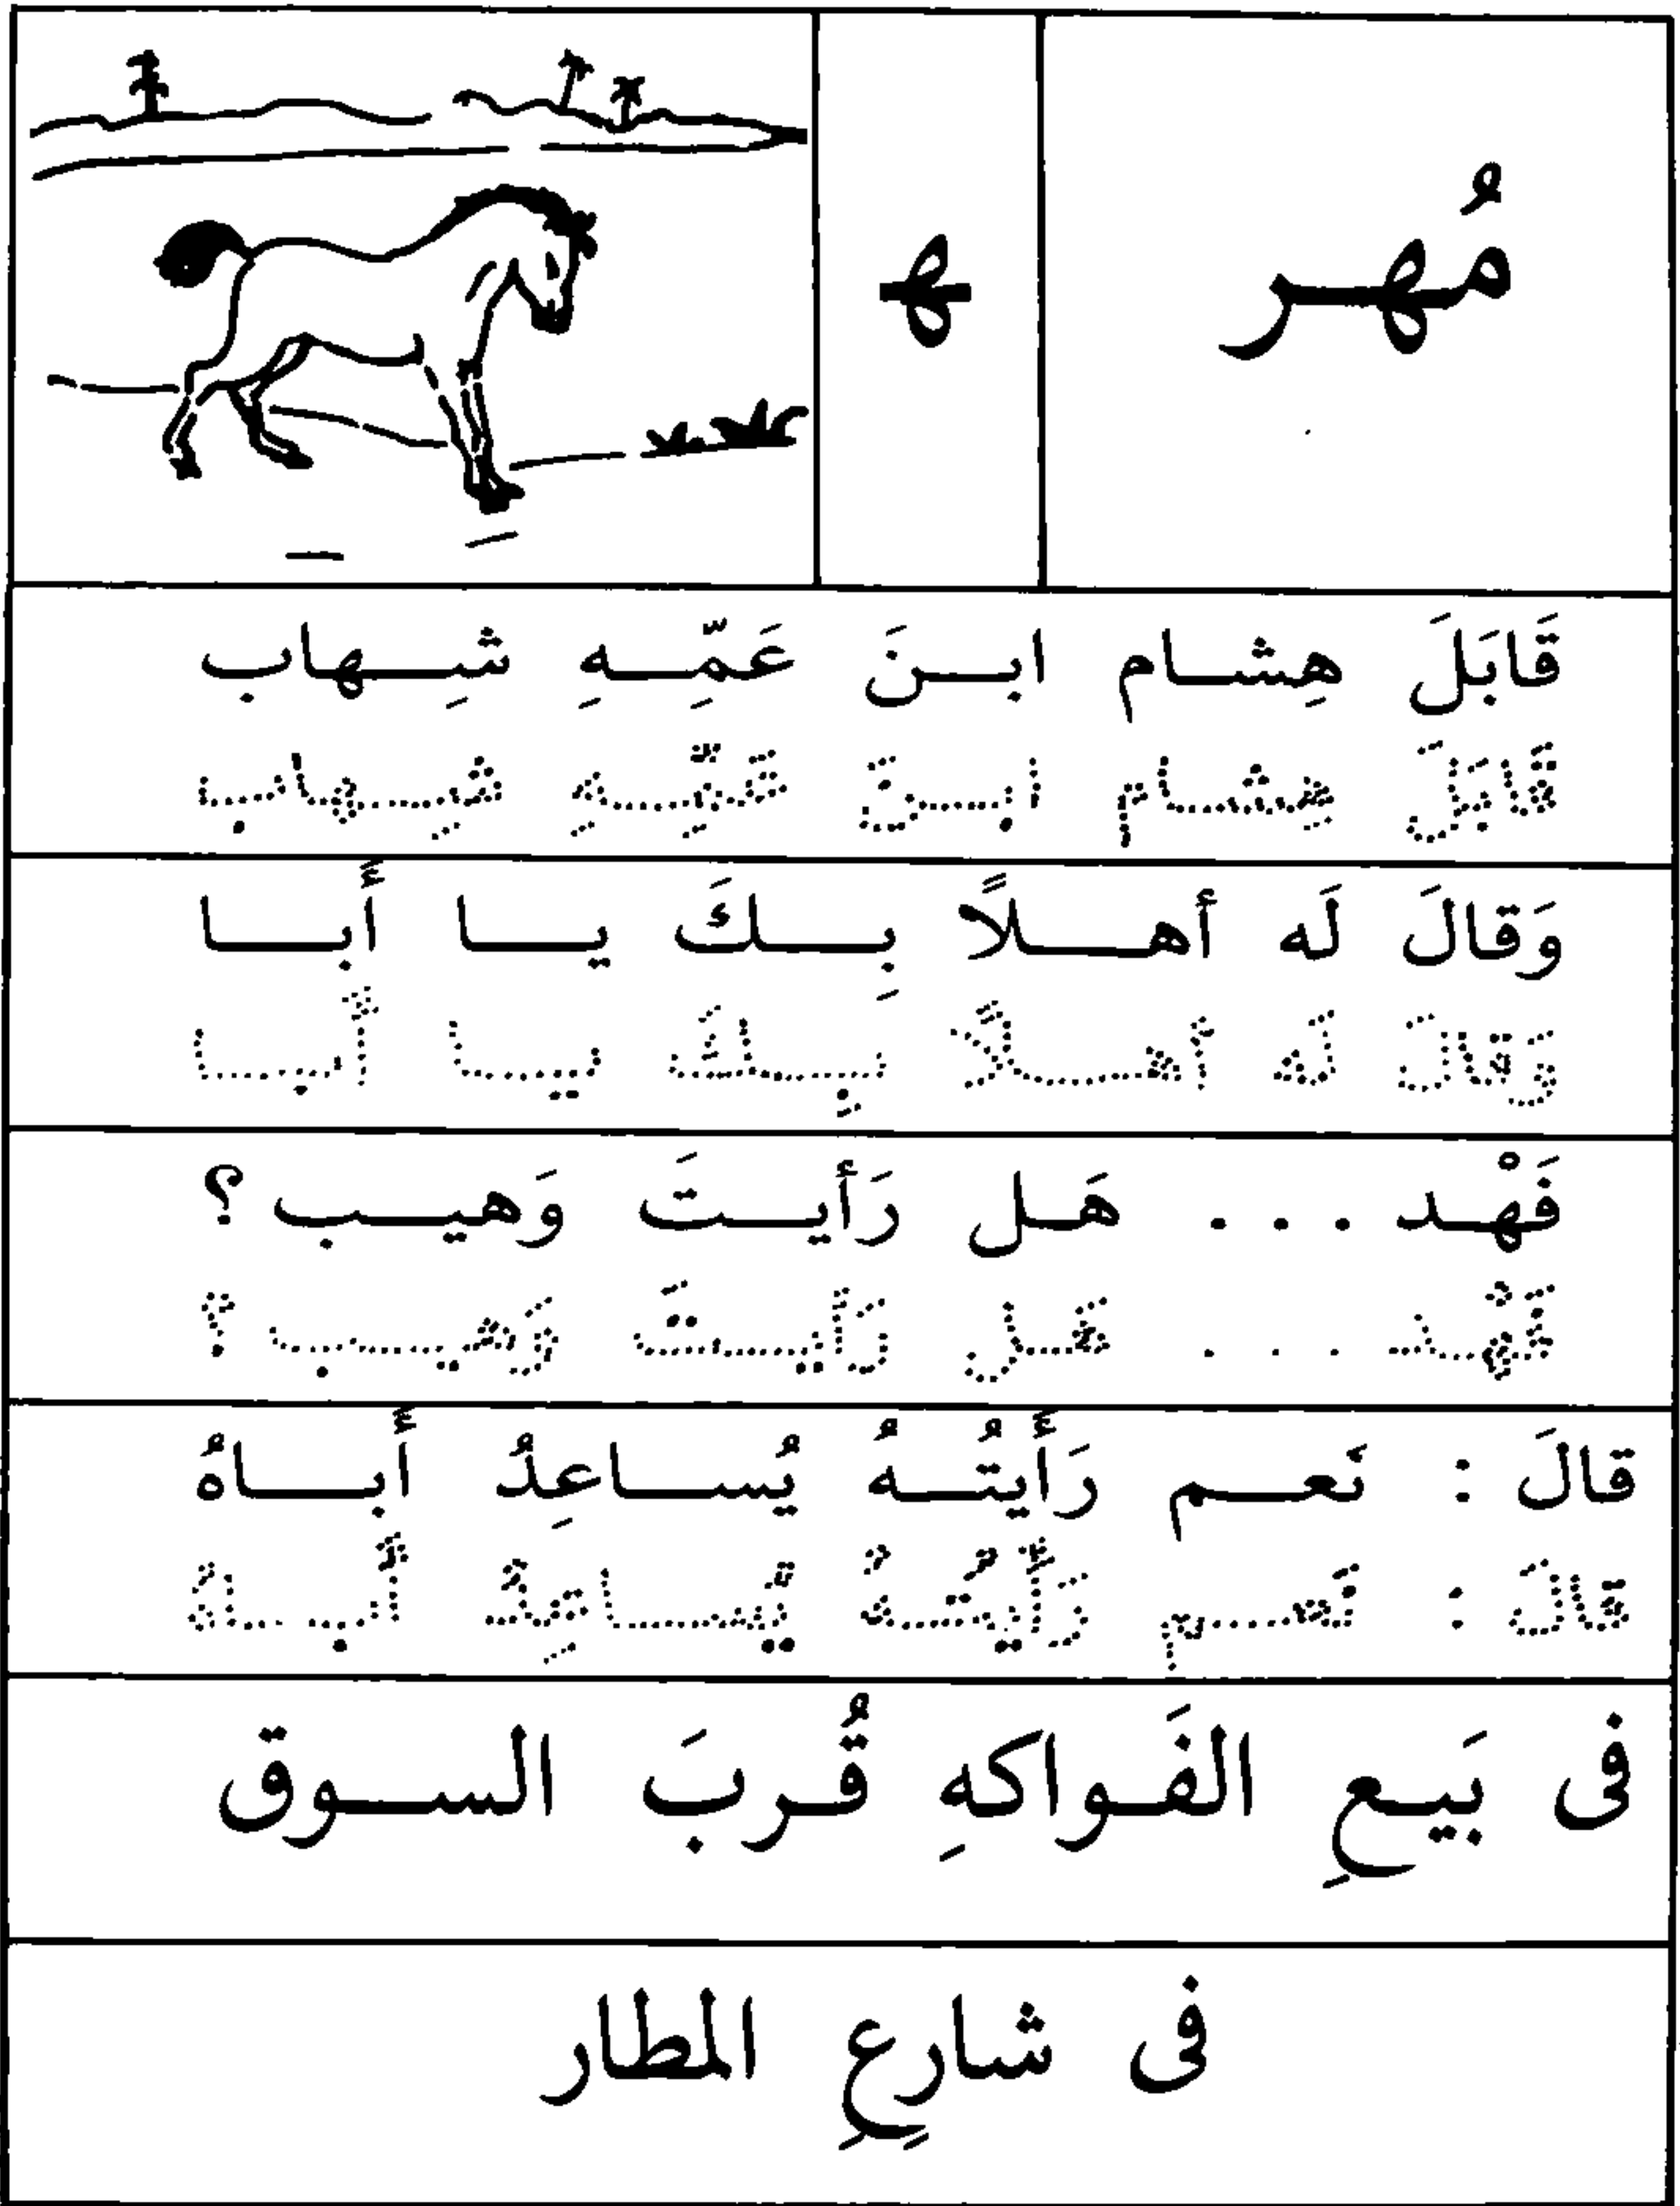 مُهـر
ـهـ
قَابَلَ هِشـام ابـنَ عَمِّـهِ شِـهاب
قَابَلَ هِشـام ابـنَ عَمِّـهِ شِـهاب
وَقالَ لَه أهـلاً بِـكَ يـا أَبـا
وَقالَ لَه أهـلاً بِـكَ يـا أَبـا
فَهْـد ... هَـل رَأيـتَ وَهيـب ؟
فَهْـد ... هَـل رَأيـتَ وَهيـب ؟
قالَ : نَعـم رَأَيتُـهُ يُسـاعِدُ أَبـاهُ
قالَ : نَعـم رَأَيتُـهُ يُسـاعِدُ أَبـاهُ
فى بَيـعِ الفَـواكهِ قُـربَ السـوق
فى شارِعِ المطار